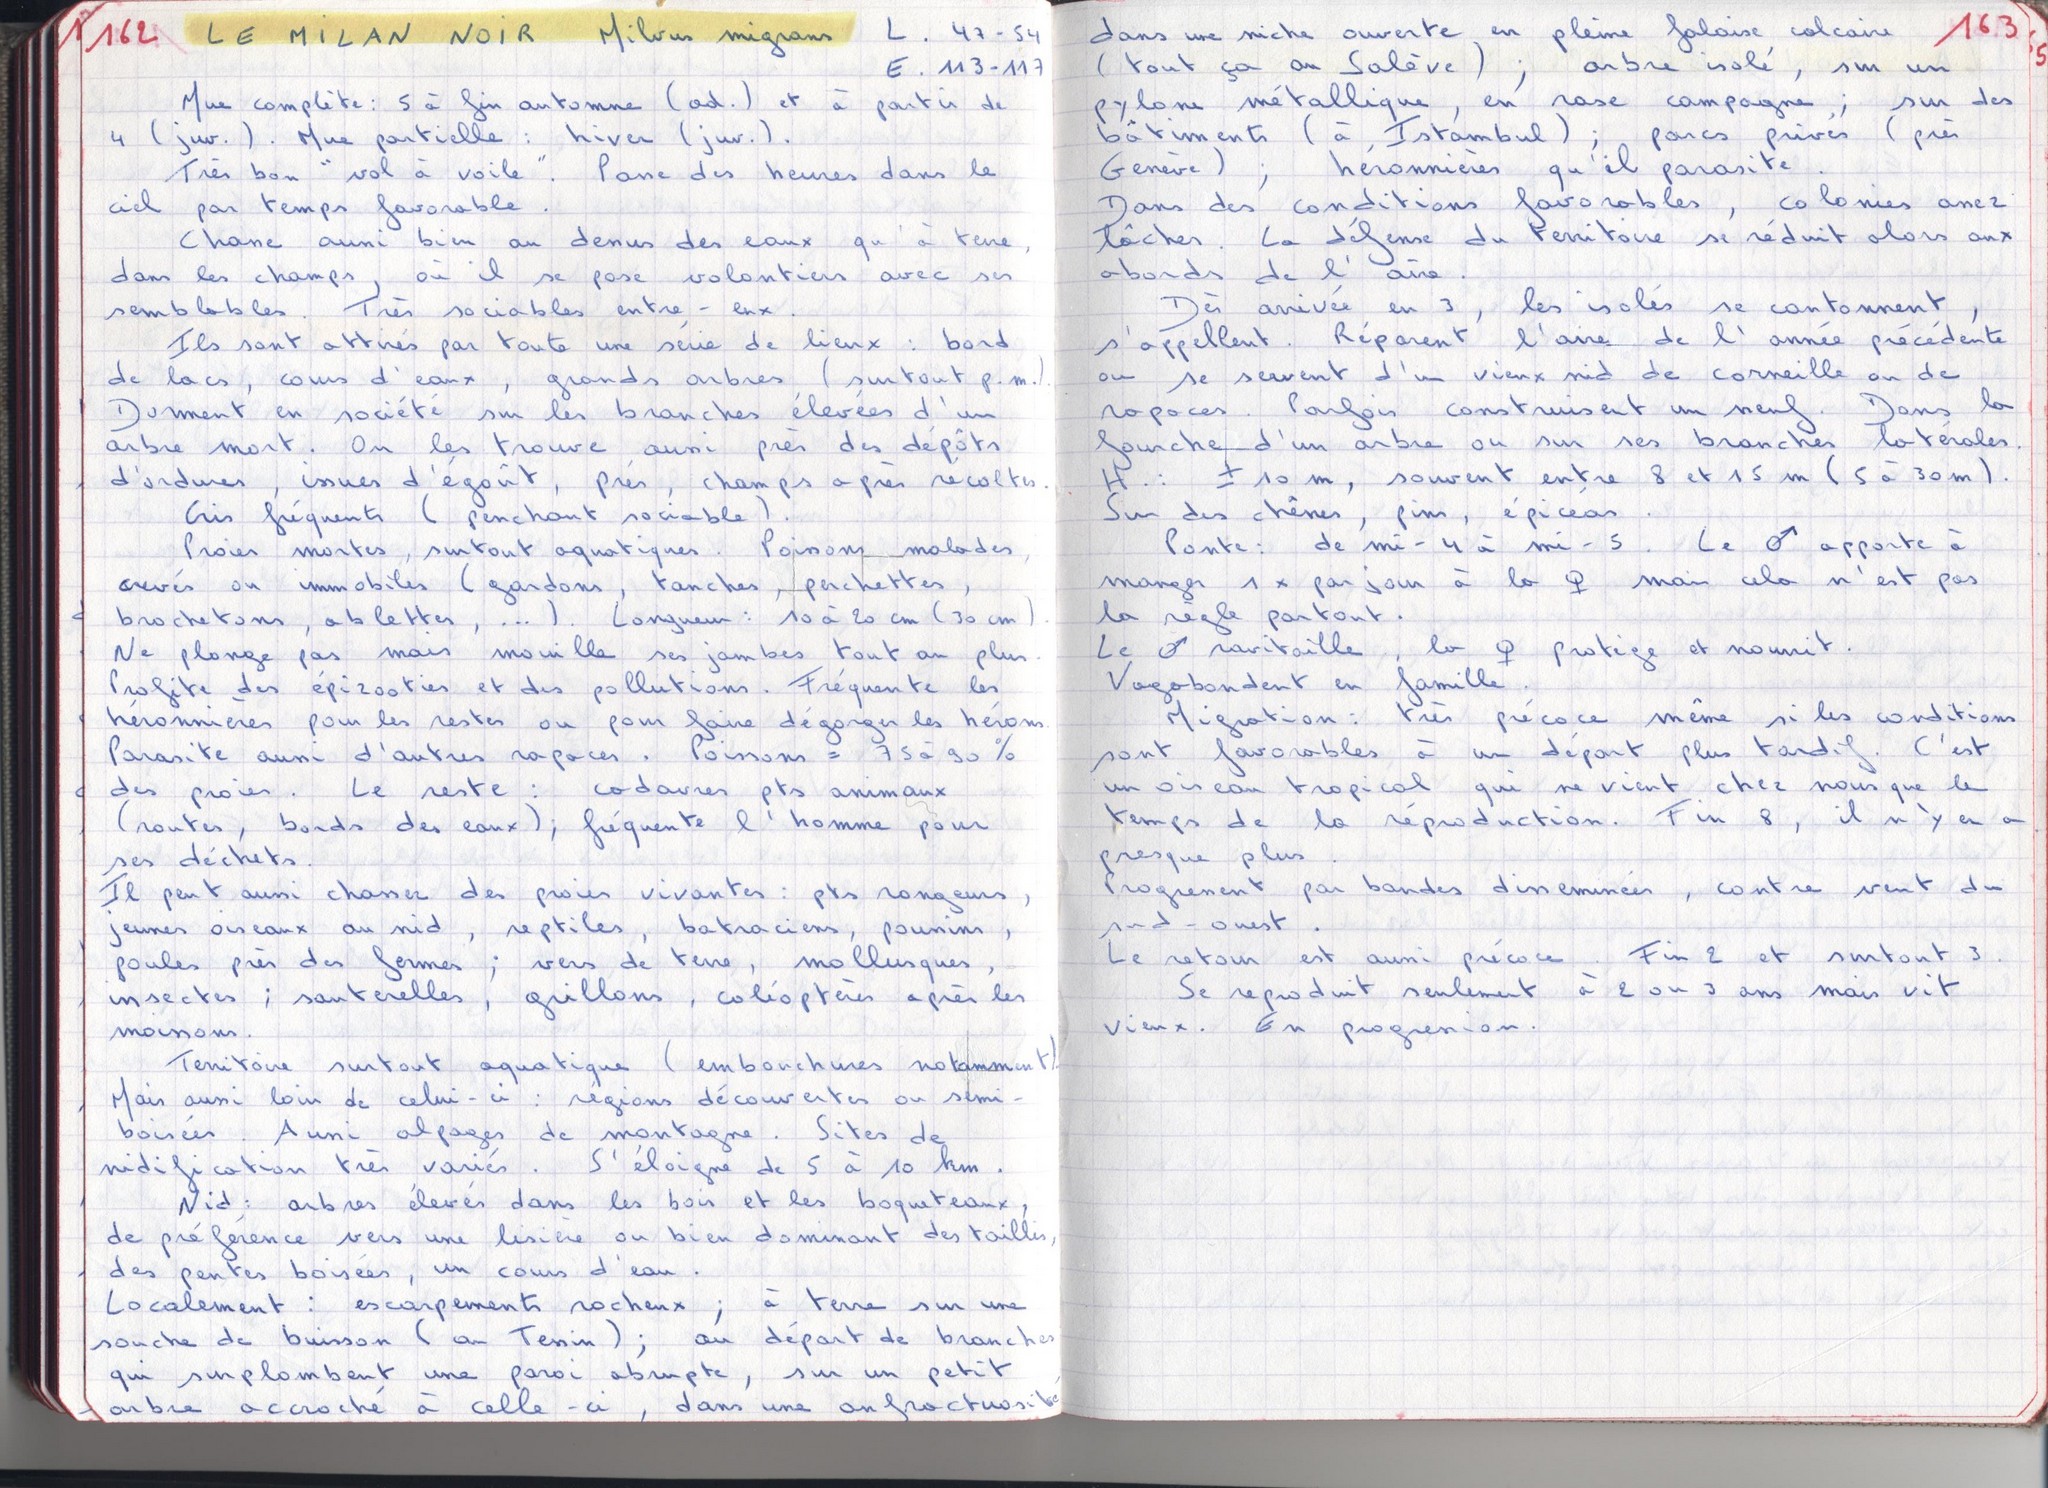 162 LE MILAN NOIR Milvus migrans L. 47-54
E. 113-117
Mue complète : 5 à fin automne (ad.) et à partir de
4 (juv.). Mue partielle : hiver (juv.).
Très bon "vol à voile". Passe des heures dans le
ciel par temps favorable.
Chasse aussi bien au dessus des eaux qu'à terre,
dans les champs, où il se pose volontiers avec ses
semblables. Très sociables entre-eux.
Ils sont attirés par toute une série de lieux : bord
de lacs, cours d'eaux, grands arbres (surtout p.m.).
Dorment en société sur les branches élevées d'un
arbre mort. On les trouve aussi près des dépôts
d'ordures, issues d'égoût, prés, champs après récoltes.
Cris fréquents (penchant sociable).
Proies mortes, surtout aquatiques. Poissons malades,
crevés ou immobiles (gardons, tanches, perchettes,
brochetons, ablettes, ...). Longueur : 10 à 20 cm (30 cm).
Ne plonge pas mais mouille ses jambes tout au plus.
Profite des épizooties et des pollutions. Fréquente les
héronnières pour les restes ou pour faire dégorger les hérons.
Parasite aussi d'autres rapaces. Poissons = 75 à 90 %
des proies. Le reste : cadavres pts animaux
(routes, bords des eaux) ; fréquente l'homme pour
ses déchets.
Il peut aussi chasser des proies vivantes : pts rongeurs,
jeunes oiseaux au nid, reptiles, batraciens, poussins,
poules près des fermes ; vers de terre, mollusques,
insectes ; sauterelles, grillons, coléoptères après les
moissons.
Territoire surtout aquatique (embouchures notamment).
Mais aussi loin de celui-ci : régions découvertes ou semi-
boisées. Aussi alpages de montagne. Sites de
nidification très variés. S'éloigne de 5 à 10 km.
Nid : arbres élevés dans les bois et les boqueteaux,
de préférence vers une lisière ou bien dominant des taillis,
des pentes boisées, un cours d'eau.
Localement : escarpements rocheux ; à terre sur une
souche de buisson (au Tessin) ; au départ de branches
qui surplombent une paroi abrupte, sur un petit
arbre accroché à celle-ci, dans une anfractuosité
163
dans une niche ouverte en pleine falaise calcaire
(tout ça au Salève) ; arbre isolé, sur un
pylone métallique, en rase campagne ; sur des
bâtiments (à Istambul) ; parcs privés (près
Genève) ; héronnières qu'il parasite.
Dans des conditions favorables, colonies assez
lâches. La défense du territoire se réduit alors aux
abords de l'aire.
Dès arrivée en 3, les isolés se cantonnent,
s'appellent. Réparent l'aire de l'année précédente
ou se servent d'un vieux nid de corneille ou de
rapaces. Parfois construisent un neuf. Dans la
fourche d'un arbre ou sur ses branches latérales.
H. : ± 10 m, souvent entre 8 et 15 m (5 à 30 m).
Sur des chênes, pins, épicéas.
Ponte : de mi-4 à mi-5. Le ♂ apporte à
manger 1x par jour à la ♀ mais cela n'est pas
la règle partout.
Le ♂ ravitaille, la ♀ protège et nourrit.
Vagabondent en famille.
Migration : très précoce même si les conditions
sont favorables à un départ plus tardif. C'est
un oiseau tropical qui ne vient chez nous que le
temps de la réproduction. Fin 8, il n'y en a
presque plus.
Progressent par bandes disseminées, contre vent du
sud-ouest.
Le retour est aussi précoce. Fin 2 et surtout 3.
Se reproduit seulement à 2 ou 3 ans mais vit
vieux. En progression.